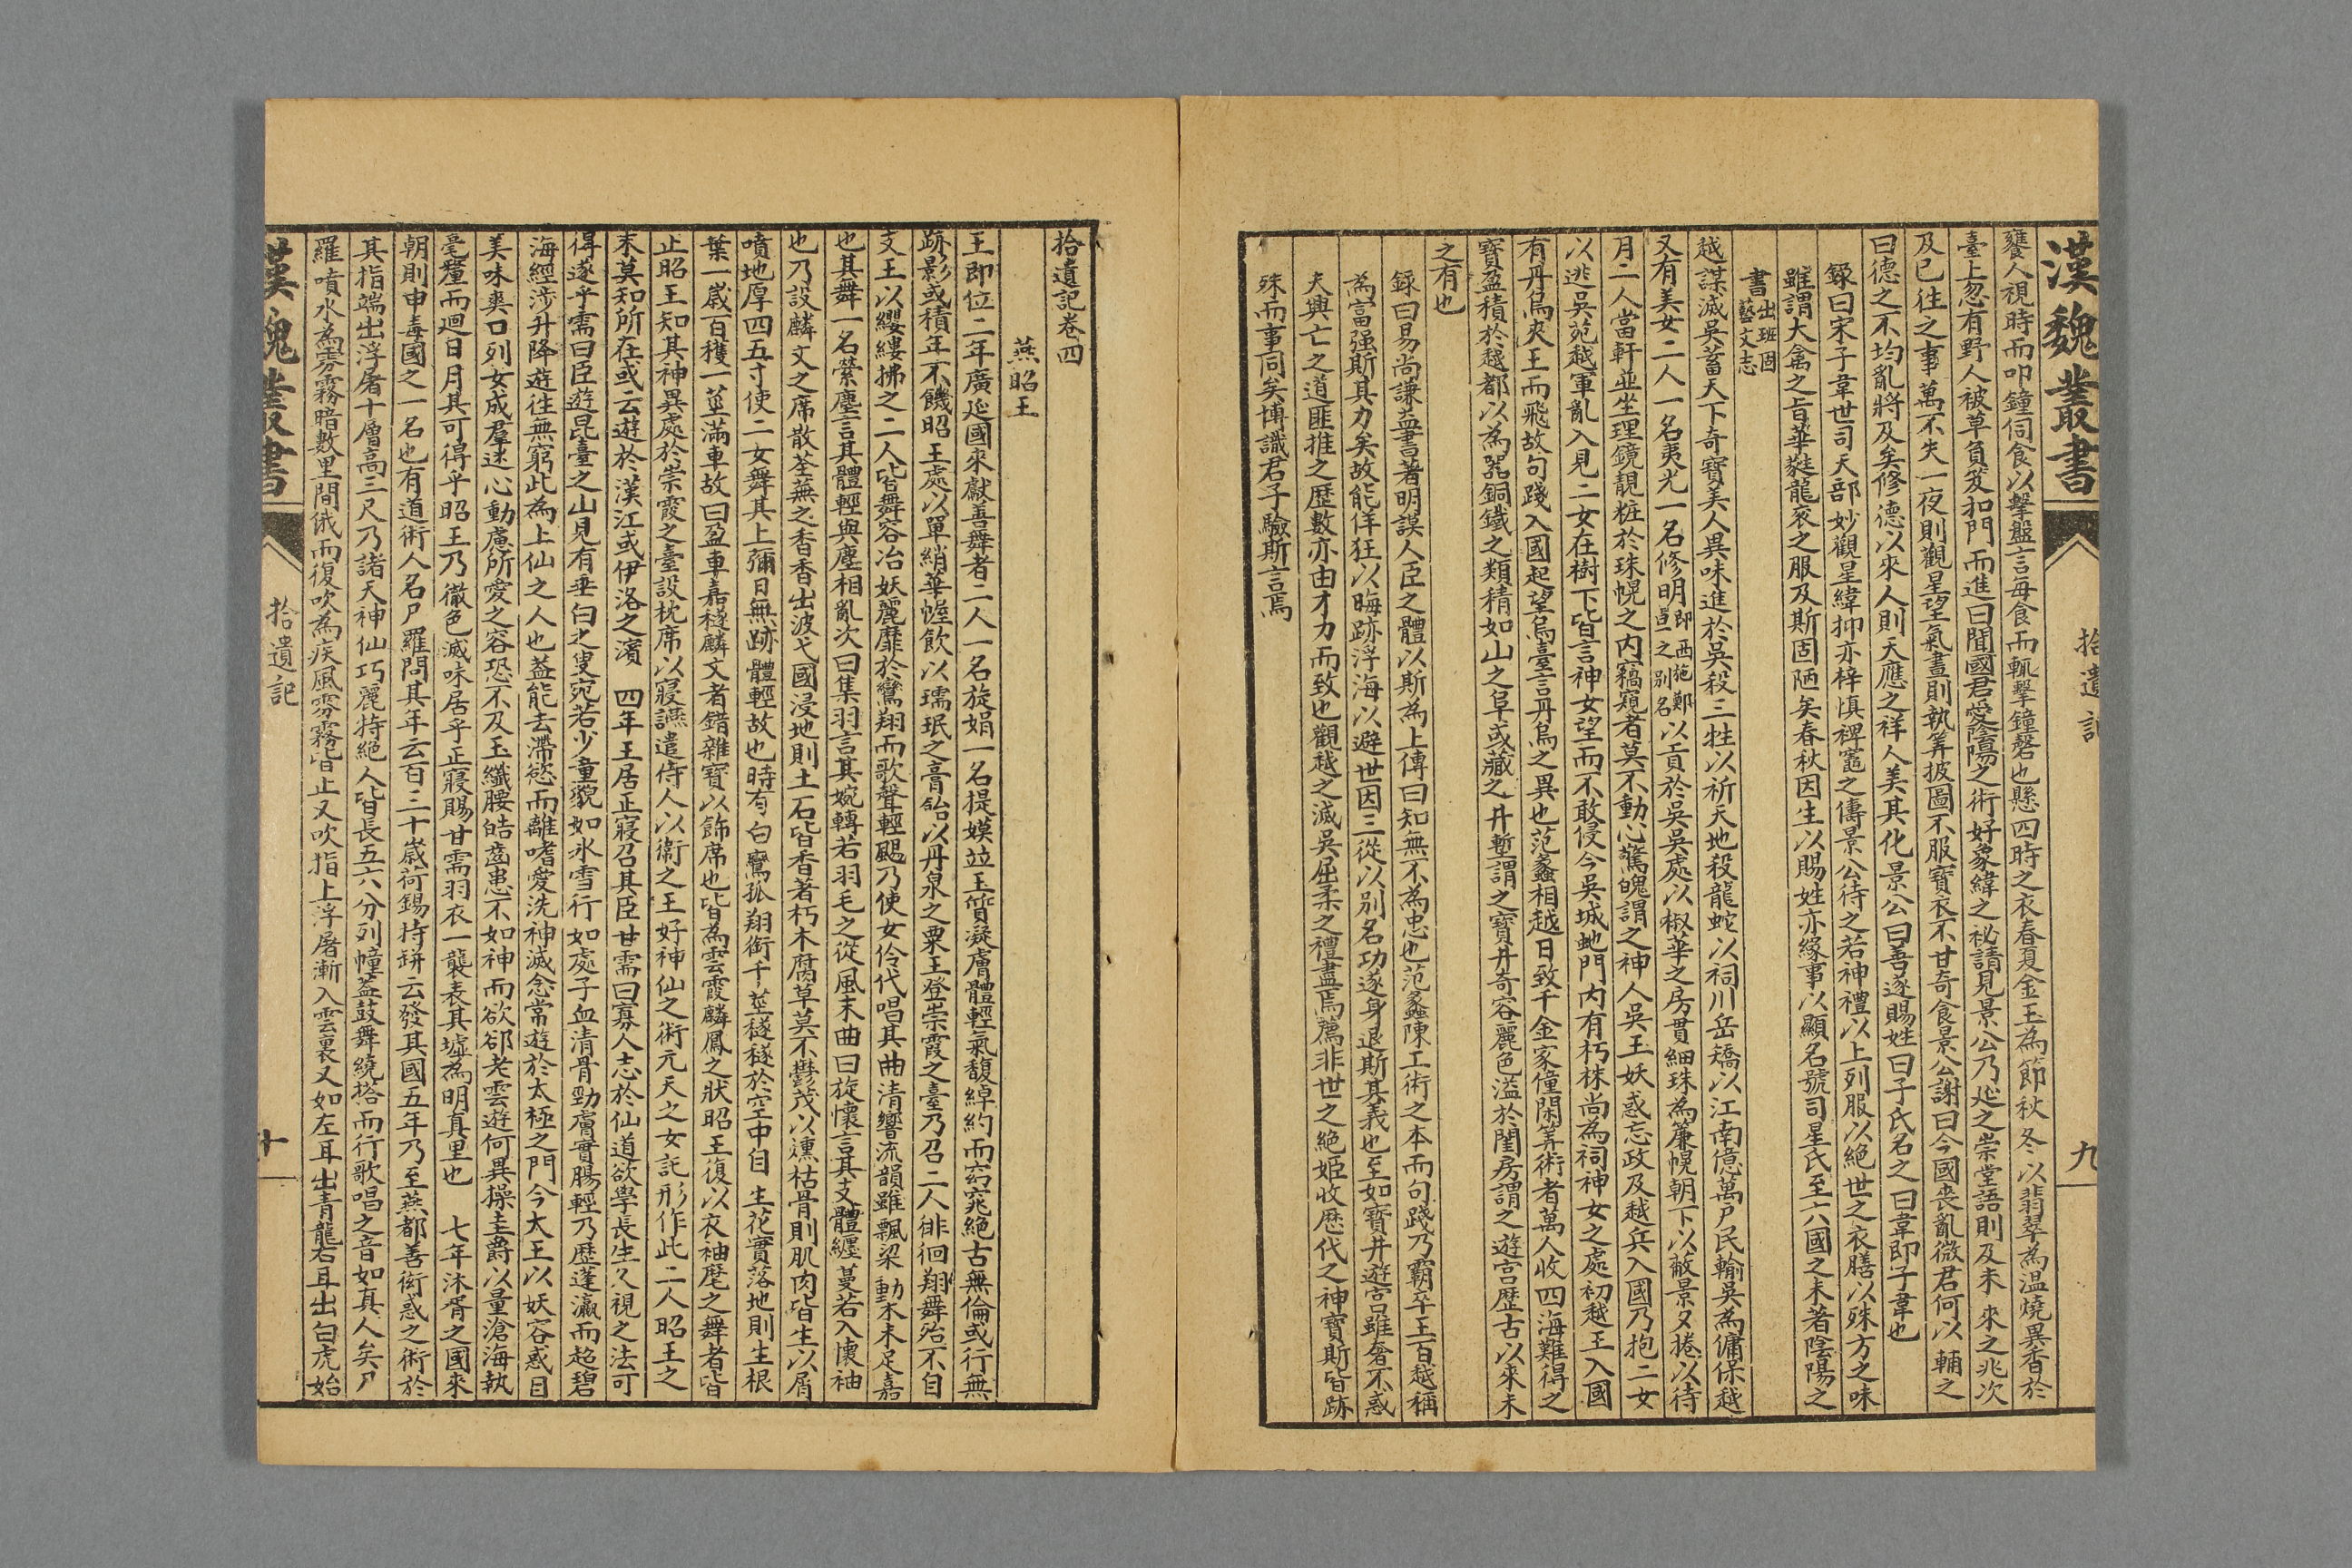 漢魏叢書
拾遺記
九
饔人視時而叩鐘伺食以擊盤言每食而輒擊鐘磬也懸四時之衣春夏金玉為節秋冬以翡翠為溫燒異香於
臺上忽有野人被草負笈扣門而進曰聞國君愛陰陽之術好象緯之秘請見景公乃延之崇堂語則及未來之兆次
及已往之事萬不失一夜則觀星望氣晝則執筭披圖不服寶衣不甘奇食景公謝曰今國喪亂微君何以輔之
曰德之不均亂將及矣修德以來人則天應之祥人美其化景公曰善遂賜姓曰子氏名之曰韋即子韋也
錄曰宋子韋世司天部妙觀星緯抑亦梓慎裨竈之儔景公待之若神禮以上列服以絕世之衣膳以殊方之味
雖謂大禽之旨華蕤龍袞之服及斯固陋矣春秋因生以賜姓亦緣事以顯名號司星氏至六國之末著陰陽之
書出班固藝文志
越謀滅吳蓄天下奇寶美人異味進於吳殺三牲以祈天地殺龍蛇以祠川岳矯以江南億萬戶民輸吳為傭保越
又有美女二人一名夷光一名修明即西施鄭旦之别名以貢於吳吳處以椒華之房貫細珠為簾幌朝下以蔽景夕捲以待
月二人當軒並坐理鏡靚粧於珠幌之内竊窺者莫不動心驚魄謂之神人吳王妖惑忘政及越兵入國乃抱二女
以逃吳苑越軍亂入見二女在樹下皆言神女望而不敢侵今吳城虵門内有朽株尚為祠神女之處初越王入國
有丹烏夾王而飛故句踐入國起望烏臺言丹烏之異也范蠡相越日致千金家僮閑筭術者萬人收四海難得之
寶盈積於越都以為器銅鐵之類積如山之阜或藏之井塹謂之寶井奇容麗色溢於閨房謂之遊宫歷古以來未
之有也
錄曰易尚謙益書著明謨人臣之體以斯為上傳曰知無不為忠也范蠡陳工術之本而句踐乃霸卒王百越稱
為富强斯其力矣故能佯狂以晦跡浮海以避世因三從以别名功遂身退斯其義也至如寶井遊宫雖奢不惑
夫興亡之道匪推之歷數亦由才力而致也觀越之滅吳屈柔之禮盡焉薦非世之絕姬收歷代之神寶斯皆跡
殊而事同矣博識君子驗斯言焉
拾遺記卷四
燕昭王
王即位二年廣延國來獻善舞者二人一名旋娟一名提嫫竝玉質凝膚體輕氣馥綽約而窈窕絕古無倫或行無
跡影或積年不饑昭王處以單綃華幄飲以瓀珉之膏飴以丹泉之粟王登崇霞之臺乃召二人徘徊翔舞殆不自
支王以纓縷拂之二人皆舞容冶妖麗靡於鸞翔而歌聲輕颺乃使女伶代唱其曲清響流韻雖飄梁動木未足嘉
也其舞一名縈塵言其體輕與塵相亂次曰集羽言其婉轉若羽毛之從風末曲曰旋懷言其支體纏蔓若入懷袖
也乃設麟文之席散荃蕪之香香出波弋國浸地則土石皆香著朽木腐草莫不鬱茂以燻枯骨則肌肉皆生以屑
噴地厚四五寸使二女舞其上彌日無跡體輕故也時有白鸞孤翔銜千莖穟穟於空中自生花實落地則生根
葉一歲百穫一莖滿車故曰盈車嘉穟麟文者錯雜寶以飾席也皆為雲霞麟鳳之狀昭王復以衣袖麾之舞者皆
止昭王知其神異處於崇霞之臺設枕席以寢讌遣侍人以衛之王好神仙之術元天之女託形作此二人昭王之
末莫知所在或云遊於漢江或伊洛之濱　四年王居正寢召其臣甘需曰寡人志於仙道欲學長生久視之法可
得遂乎需曰臣遊昆臺之山見有垂白之叟宛若少童貌如冰雪行如處子血清骨勁膚實腸輕乃歷蓬瀛而超碧
海經涉升降遊往無窮此為上仙之人也蓋能去滯慾而離嗜愛洗神滅念常遊於太極之門今大王以妖容惑目
美味爽口列女成羣迷心動慮所愛之容恐不及玉纖腰皓齒患不如神而欲郤老雲遊何異操圭爵以量滄海執
毫釐而迴日月其可得乎昭王乃徹色滅味居乎正寢賜甘需羽衣一襲表其墟為明真里也　七年沐胥之國來
朝則申毒國之一名也有道術人名尸羅問其年云百三十歲荷錫持缾云發其國五年乃至燕都善衒惑之術於
其指端出浮屠十層高三尺乃諸天神仙巧麗特絕人皆長五六分列幢蓋鼓舞繞塔而行歌唱之音如真人矣尸
羅噴水為雰霧暗數里間俄而復吹為疾風雰霧皆止又吹指上浮屠漸入雲裏又如左耳出青龍右耳出白虎始
漢魏叢書
拾遺記
十